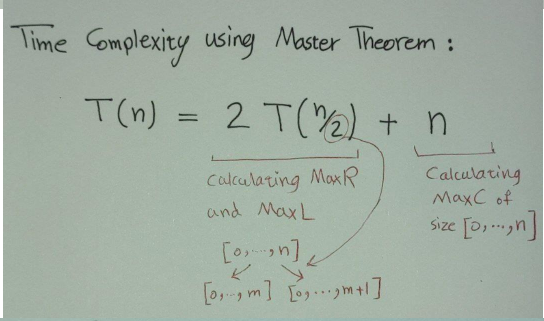 Time Complexity using Master Theorem :
T(n) = 2 T(n/2) + n
Calculating MaxR
and MaxL
Calculating
MaxC of
size [0,...,n]
[0,...,n]
[0,...,m] [0,...,m+1]